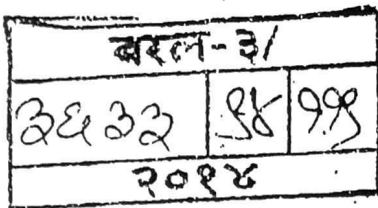 बरल-३/
३६३३ १४ ११९
२०१४